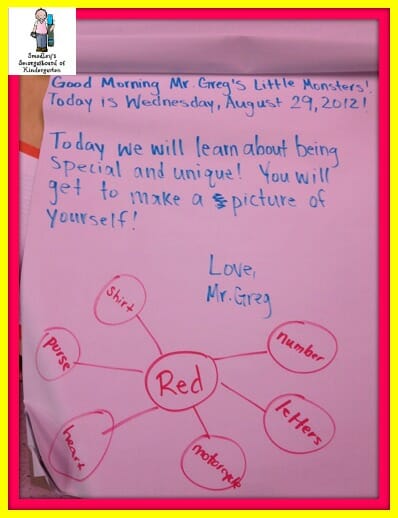 Smedley's
Smorgasboard of
Kindergarten
Good Morning Mr. Greg's Little Monsters!
Today is Wednesday, August 29, 2012!
Today we will learn about being
special and unique! You will
get to make a picture of
yourself!
Love,
Mr. Greg
shirt
purse
number
Red
letters
heart
motorcycle